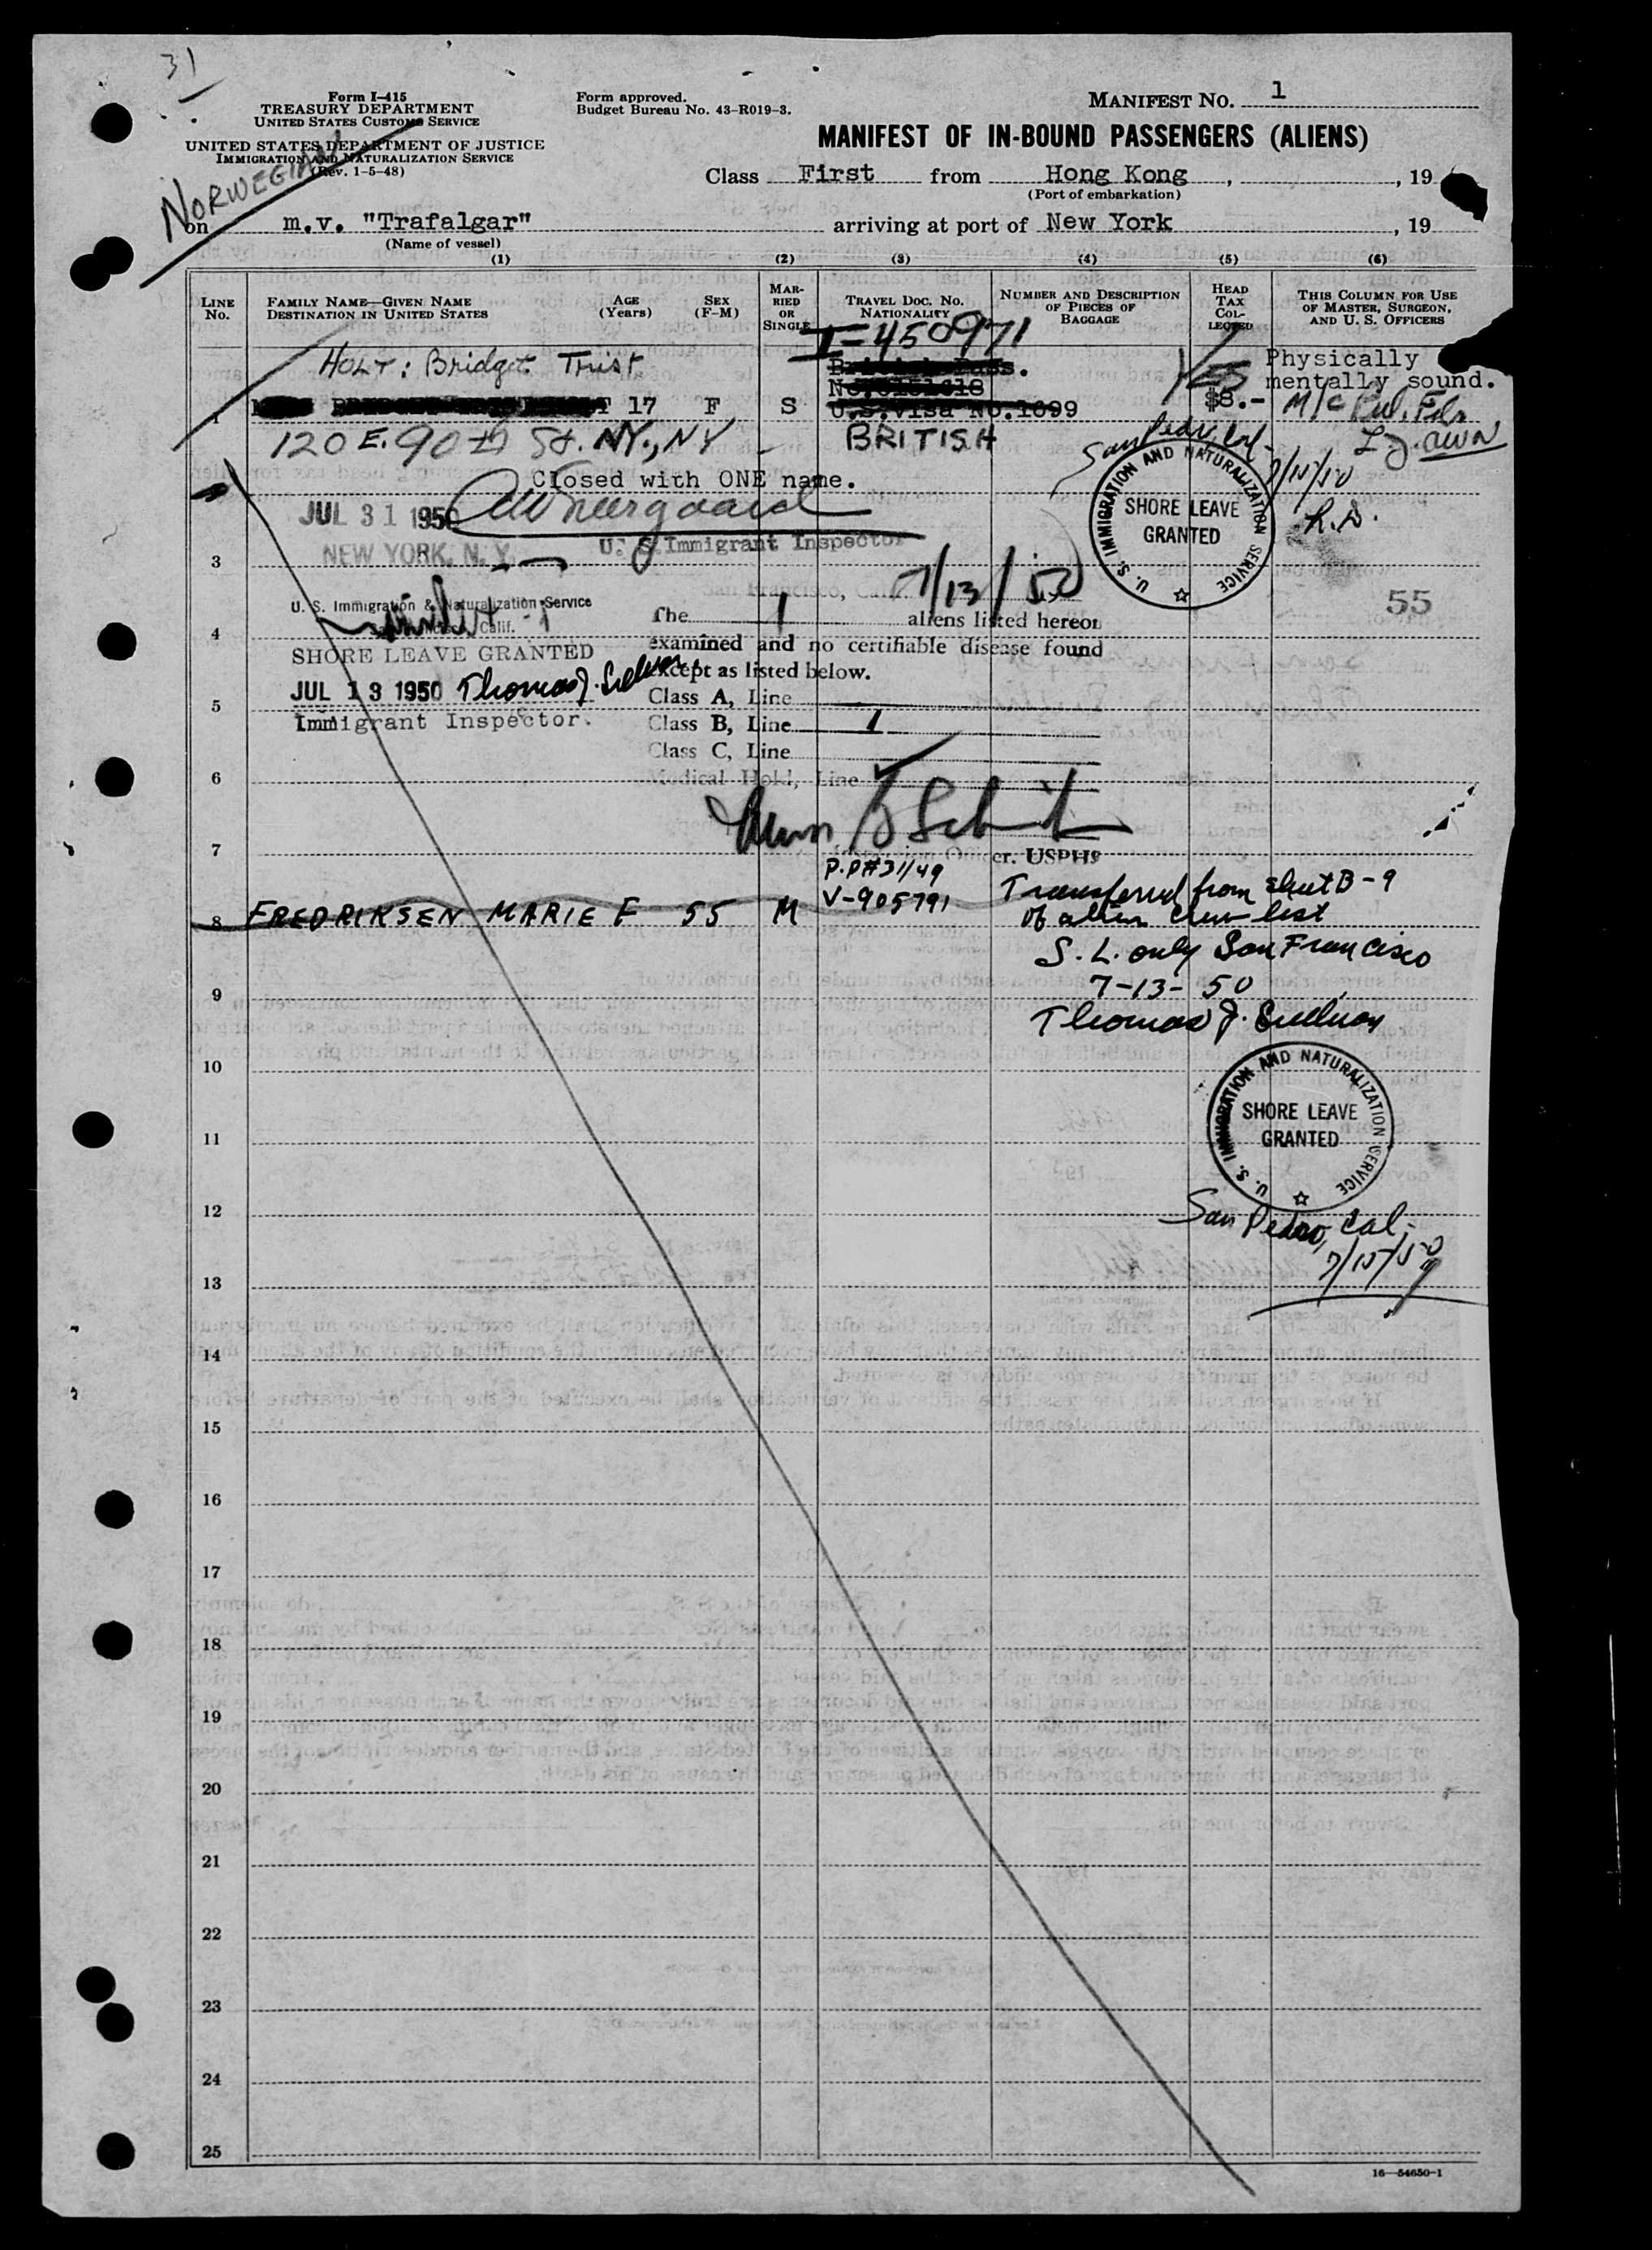 31
Form I-415
TREASURY DEPARTMENT
UNITED STATES CUSTOMS SERVICE
UNITED STATES DEPARTMENT OF JUSTICE
IMMIGRATION AND NATURALIZATION SERVICE
(Rev. 1-5-48)
Form approved.
Budget Bureau No. 43-R019-3.
MANIFEST NO. 1
MANIFEST OF IN-BOUND PASSENGERS (ALIENS)
Class First from Hong Kong, , 19
(Port of embarkation)
NORWEGIAN
on m.v. "Trafalgar" arriving at port of New York , 19
(Name of vessel)
(1) (2) (3) (4) (5) (6)
LINE No. FAMILY NAME—GIVEN NAME DESTINATION IN UNITED STATES AGE (Years) SEX (F-M) MARRIED OR SINGLE TRAVEL DOC. NO. NATIONALITY NUMBER AND DESCRIPTION OF PIECES OF BAGGAGE HEAD TAX COLLECTED THIS COLUMN FOR USE OF MASTER, SURGEON, AND U. S. OFFICERS
I-450971
HOLT: Bridget Trist
YES
Physically
mentally sound.
1 17 F S U.S. Visa No. 1699 $8.-
120 E. 90th St. NY., NY BRITISH
San Pedro, Cal.
7/15/50
R.D.
Closed with ONE name.
JUL 31 1950
NEW YORK, N. Y.
U. S. Immigrant Inspector
U. S. IMMIGRATION AND NATURALIZATION SERVICE
SHORE LEAVE
GRANTED
3
San Francisco, Cal. 7/13/50
U. S. Immigration & Naturalization Service
San Francisco, Calif.
55
The 1 aliens listed hereon
4
examined and no certifiable disease found
SHORE LEAVE GRANTED
except as listed below.
JUL 13 1950 Thomas J. Sullivan
Class A, Line
5
Immigrant Inspector.
Class B, Line 1
Class C, Line
6
Medical Hold, Line
7
Officer. USPHS
P.P#31/49
V-905791
8 FREDRIKSEN MARIE F 55 M
Transferred from sheet B-9
of alien crew list
S. L. only San Francisco
7-13-50
9
Thomas J. Sullivan
10
U. S. IMMIGRATION AND NATURALIZATION SERVICE
SHORE LEAVE
GRANTED
11
12
San Pedro, Cal.
7/15/50
13
14
15
16
17
18
19
20
21
22
23
24
25
16—54650-1